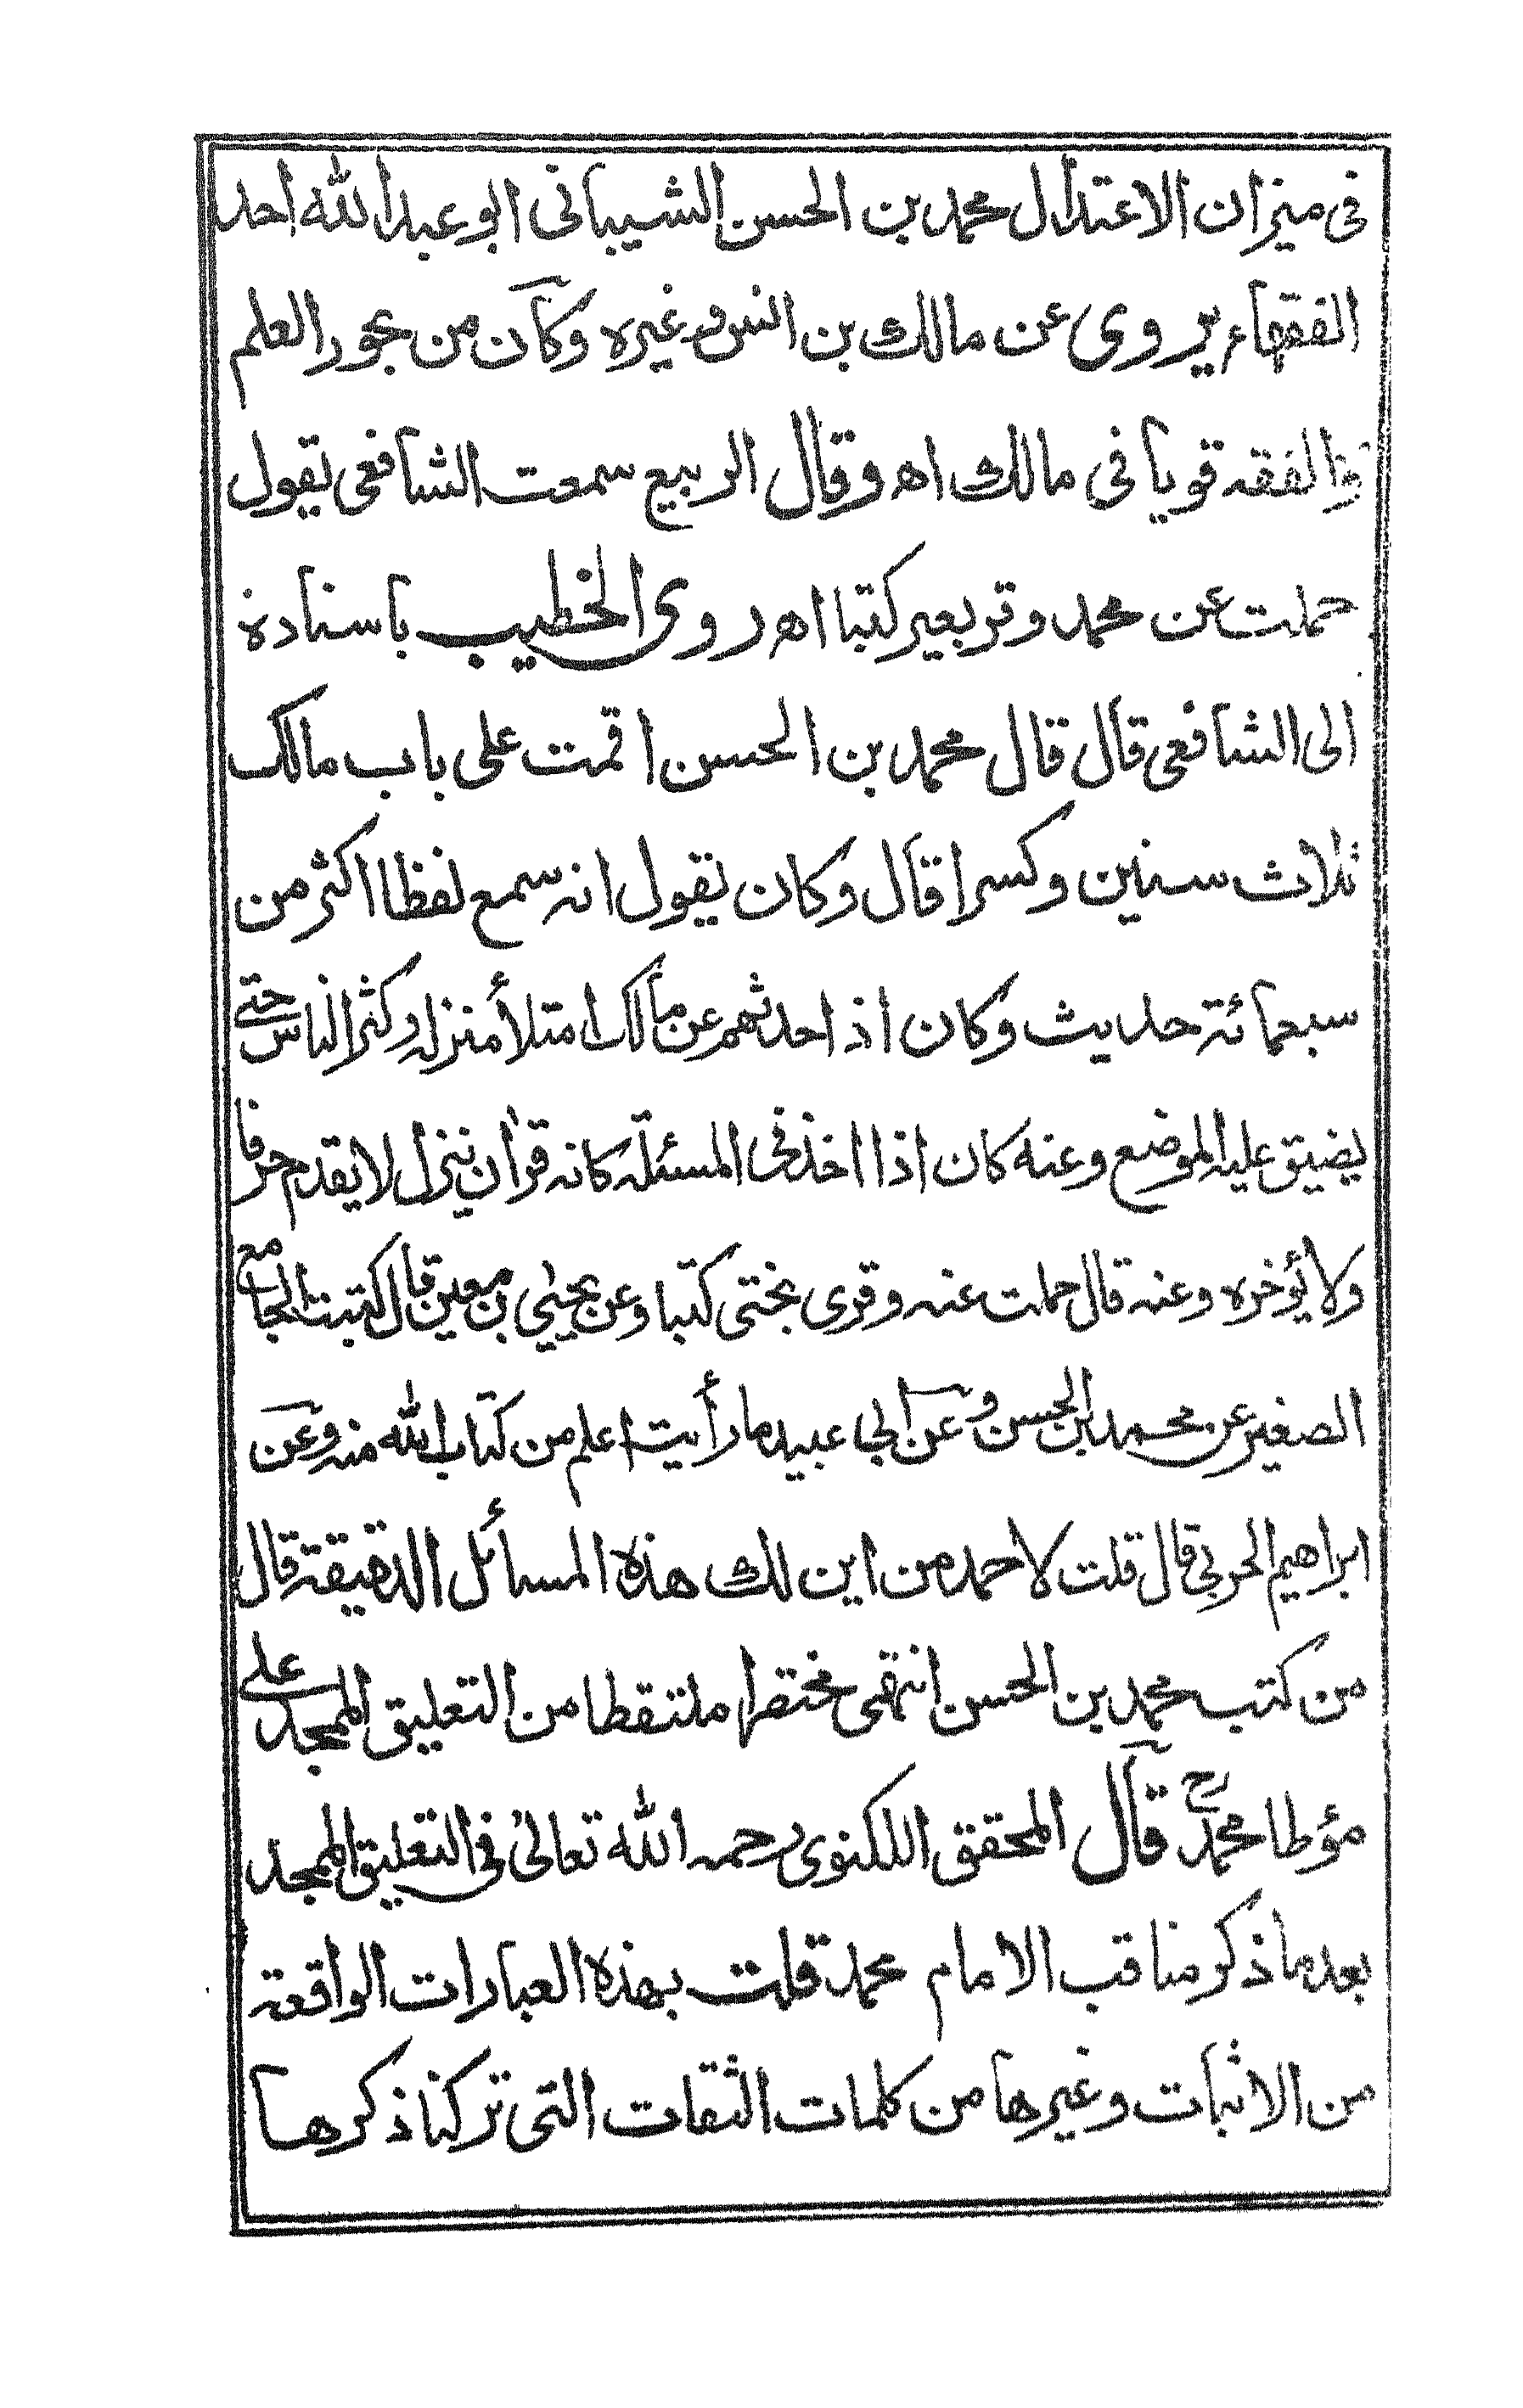 فى ميزان الاعتدال محمد بن الحسن الشيبانى ابو عبد الله احد
الفقهاء يروى عن مالك بن انس وغيره وكان من بحور العلم
والفقه قويا فى مالك اه وقال الربيع سمعت الشافعى يقول
حملت عن محمد وقر بعير كتبا اه روى الخطيب باسناده
الى الشافعى قال قال محمد بن الحسن اقمت على باب مالك
ثلاث سنين وكسرا قال وكان يقول انه سمع لفظا اكثر من
سبعمائة حديث وكان اذا حدثهم عن مالك امتلأ منزله وكثر الناس حتى
يضيق عليه الموضع وعنه كان اذا اخذ فى المسئلة كانه قرأن ينزل لا يقدم حرفا
ولا يؤخره وعنه قال حملت عنه وقرى بختى كتبا وعن يحيى بن معين قال كتبت الجامع
الصغير عن محمد بن الحسن وعن ابي عبيد ما رأيت اعلم من كتاب الله منه وعن
ابراهيم الحربي قال قلت لاحمد من اين لك هذه المسائل الدقيقة قال
من كتب محمد بن الحسن انتهى مختصرا ملتقطا من التعليق الممجد على
مؤطا محمدؒ قال المحقق اللكنوى رحمه الله تعالىٰ فى التعليق الممجد
بعد ما ذكر مناقب الامام محمد قلت بهذه العبارات الواقعة
من الاثبات وغيرها من كلمات الثقات التى تركنا ذكرها